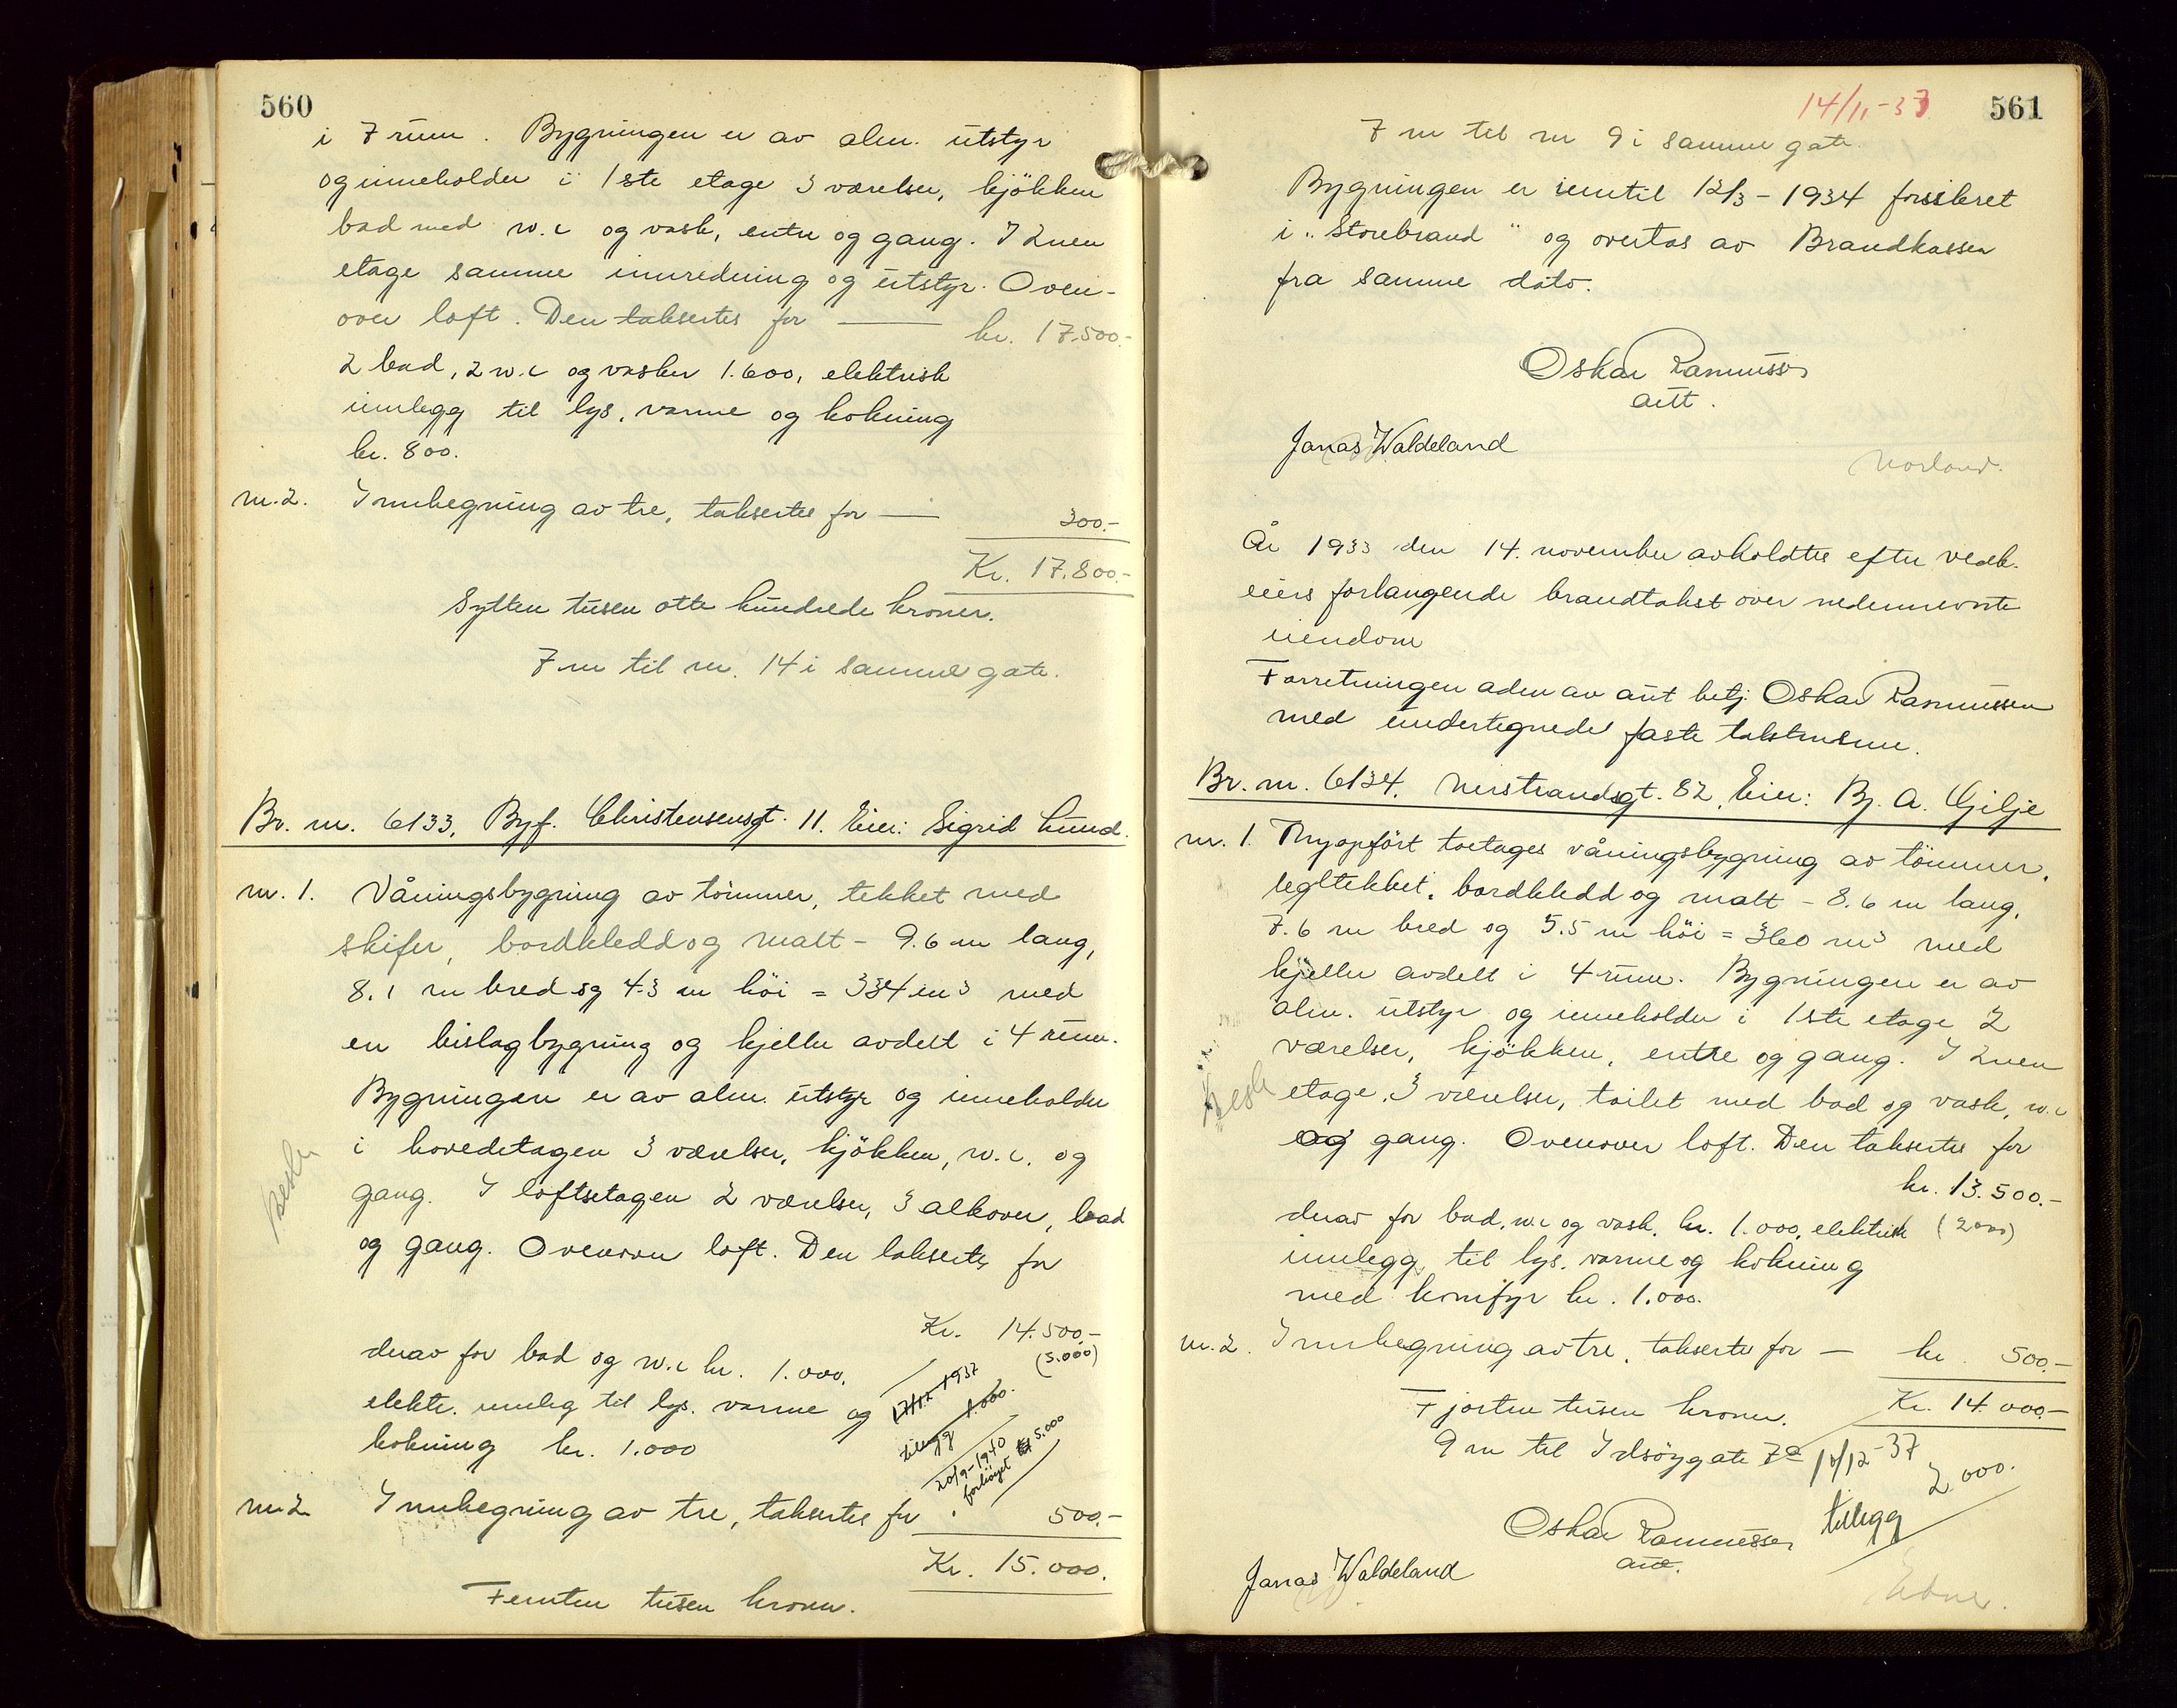 560
i 7 rum. Bygningen er av alm. utstyr
og inneholder i 1ste etage 3 værelser, kjökken
bad med w.c og vask, entre og gang. I 2nen
etage samme innredning og utstyr. Oven-
over loft. Den takseres for — kr. 17.500.-
2 bad, 2 w.c og vasker 1.600, elektrisk
innlegg til lys, varme og kokning
kr. 800.
nr. 2. Innhegning av tre, takseres for — 300.-
Kr. 17.800.-
Sytten tusen otte hundrede kroner.
7 m til nr. 14 i samme gate.
Br. nr. 6133. Byf. Christensensgt. 11. Eier: Sigrid Lund.
nr. 1. Våningsbygning av tömmer, tekket med
skifer, bordkledd og malt - 9.6 m lang,
8.1 m bred og 4.3 m höi = 334 m3 med
en bislagbygning og kjeller avdelt i 4 rum.
Bygningen er av alm. utstyr og inneholder
i hovedetagen 3 værelser, kjökken, w.c. og
gang. I loftsetagen 2 værelser, 3 alkover, bad
og gang. Ovenover loft. Den takseres for
Kr. 14.500.-
(5.000)
derav for bad og w.c kr. 1.000.
elektr. innleg til lys. varme og
kokning kr. 1.000
1937
tillegg 1.000.
20/9-1940
forhöyet til 5.000
nr. 2 Innhegning av tre, takseres for 500.-
Kr. 15.000.
Femten tusen kroner.
14/11-33
561
7 m til nr 9 i samme gate.
Bygningen er inntil 12/3-1934 forsikret
i "Storebrand" og overtas av Brandkassen
fra samme dato.
Oskar Rasmussen
aut.
Jonas Waldeland
År 1933 den 14. november avholdtes efter vedk.
eiers forlangende brandtakst over nedennevnte
eiendom
Forretningen aden av aut betj. Oskar Rasmussen
med undertegnede faste takstmenn.
Br. nr. 6134. Nerstrandsgt. 82, Eier: Bj. A. Gilje
nr. 1. Nyopfört toetages våningsbygning av tömmer,
tegltekket, bordkledd og malt - 8.6 m lang,
7.6 m bred og 5.5 m höi = 360 m3 med
kjeller avdelt i 4 rum. Bygningen er av
alm. utstyr og inneholder i 1ste etage 2
værelser, kjökken, entre og gang. I 2nen
etage, 3 værelser, toilet med bad og vask, w.c
og gang. Ovenover loft. Den takseres for
kr. 13.500.-
derav for bad, w.c og vask, kr. 1.000, elektrisk (2000)
innlegg til lys, varme og kokning
med komfyr kr. 1.000.
nr. 2. Innhegning av tre, takseres for — kr. 500.-
Fjorten tusen kroner. Kr. 14.000.-
9 m til Idsöygate 7a
10/12-37
tillegg 2.000.
Oskar Rasmussen
aut.
Jonas Waldeland